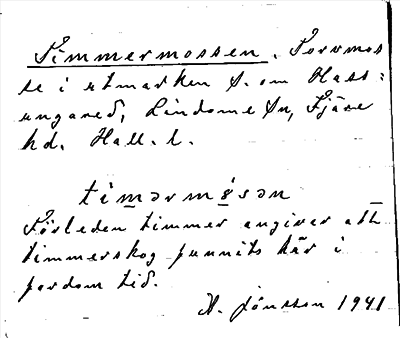 Timmermossen. Torvmos
se i utmarken S. om Hass=
ungared, Lindome sn, Fjäre
hd. Hall. l.
timərmɔ́sən
Förleden timmer angiver att
timmerskog funnits här i
fordom tid.
H. Jönsson 1941